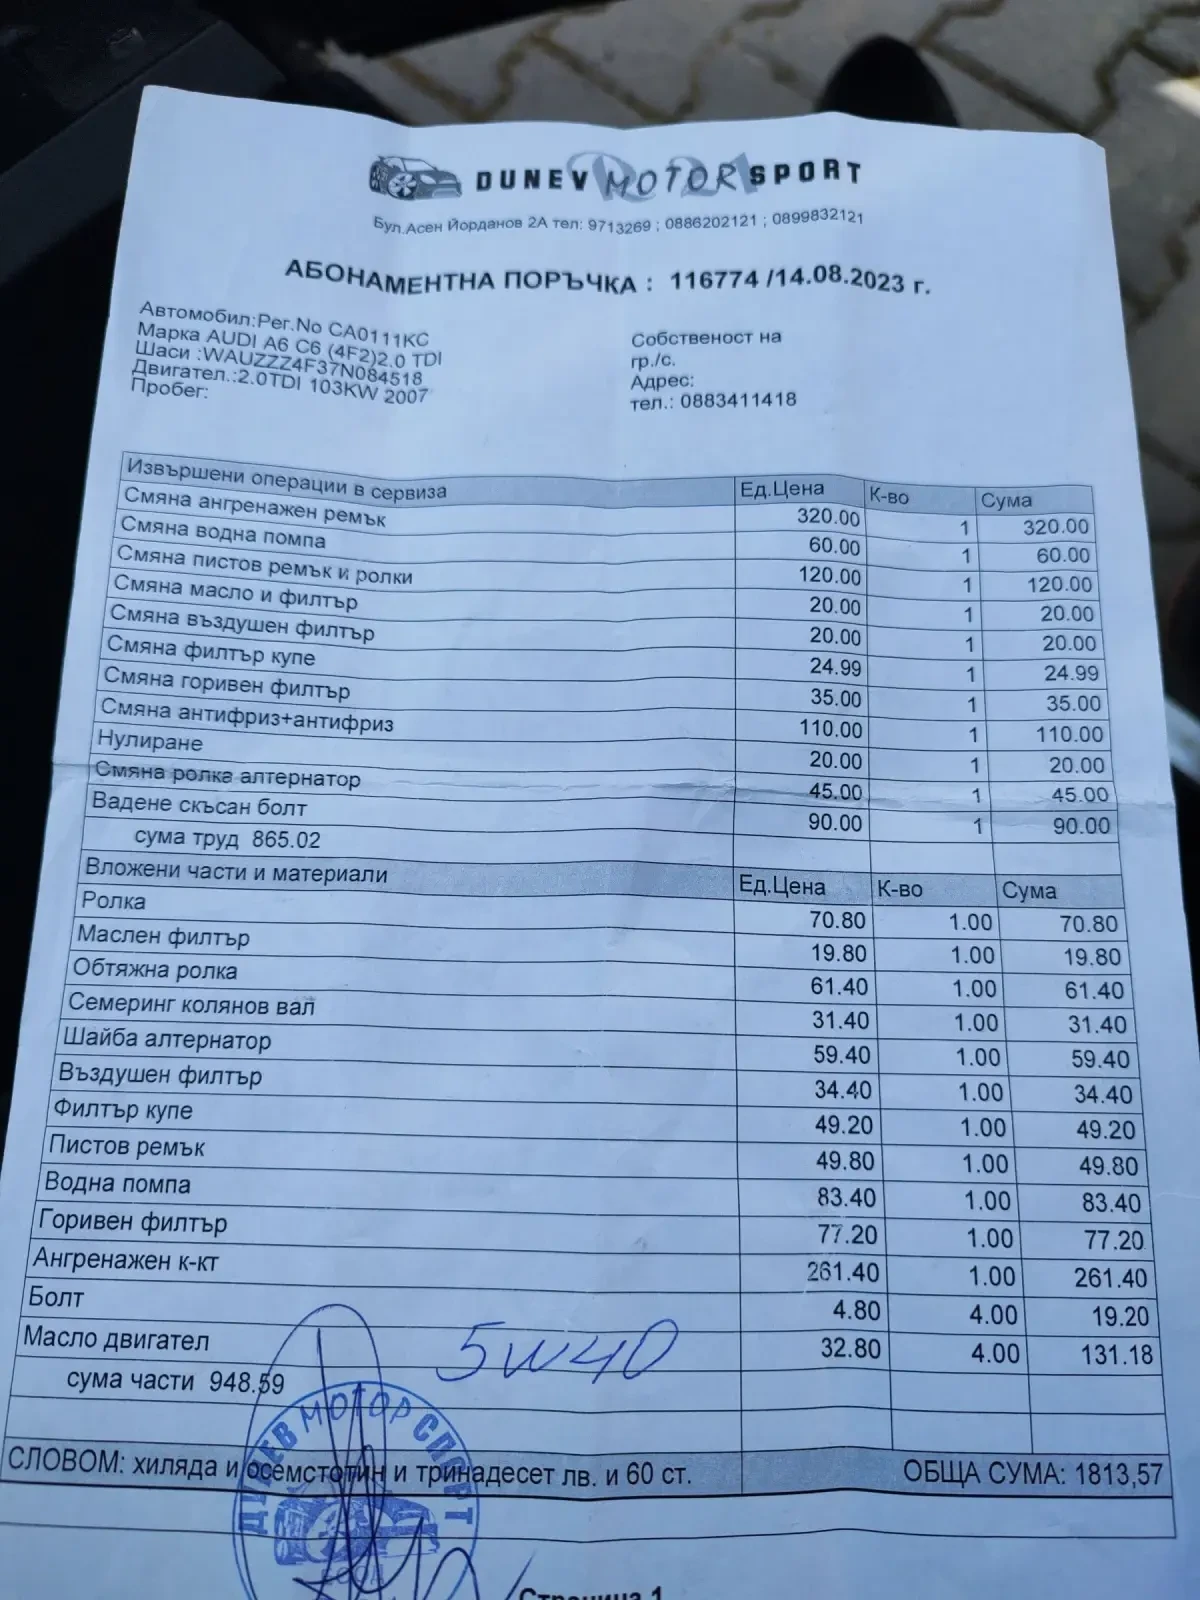 DUNEV MOTOR SPORT
Бул.Асен Йорданов 2А тел: 9713269 ; 0886202121 ; 0899832121
АБОНАМЕНТНА ПОРЪЧКА : 116774 /14.08.2023 г.
Автомобил:Рег.No CA0111KC
Марка AUDI A6 C6 (4F2)2.0 TDI
Шаси :WAUZZZ4F37N084518
Двигател.:2.0TDI 103KW 2007
Пробег:
Собственост на
гр./с.
Адрес:
тел.: 0883411418
Извършени операции в сервиза Ед.Цена К-во Сума
Смяна ангренажен ремък 320.00 1 320.00
Смяна водна помпа 60.00 1 60.00
Смяна пистов ремък и ролки 120.00 1 120.00
Смяна масло и филтър 20.00 1 20.00
Смяна въздушен филтър 20.00 1 20.00
Смяна филтър купе 24.99 1 24.99
Смяна горивен филтър 35.00 1 35.00
Смяна антифриз+антифриз 110.00 1 110.00
Нулиране 20.00 1 20.00
Смяна ролка алтернатор 45.00 1 45.00
Вадене скъсан болт 90.00 1 90.00
сума труд 865.02
Вложени части и материали Ед.Цена К-во Сума
Ролка 70.80 1.00 70.80
Маслен филтър 19.80 1.00 19.80
Обтяжна ролка 61.40 1.00 61.40
Семеринг колянов вал 31.40 1.00 31.40
Шайба алтернатор 59.40 1.00 59.40
Въздушен филтър 34.40 1.00 34.40
Филтър купе 49.20 1.00 49.20
Пистов ремък 49.80 1.00 49.80
Водна помпа 83.40 1.00 83.40
Горивен филтър 77.20 1.00 77.20
Ангренажен к-кт 261.40 1.00 261.40
Болт 4.80 4.00 19.20
Масло двигател 32.80 4.00 131.18
5W40
сума части 948.59
СЛОВОМ: хиляда и осемстотин и тринадесет лв. и 60 ст. ОБЩА СУМА: 1813,57
ДУНЕВ МОТОР СПОРТ
Страница 1